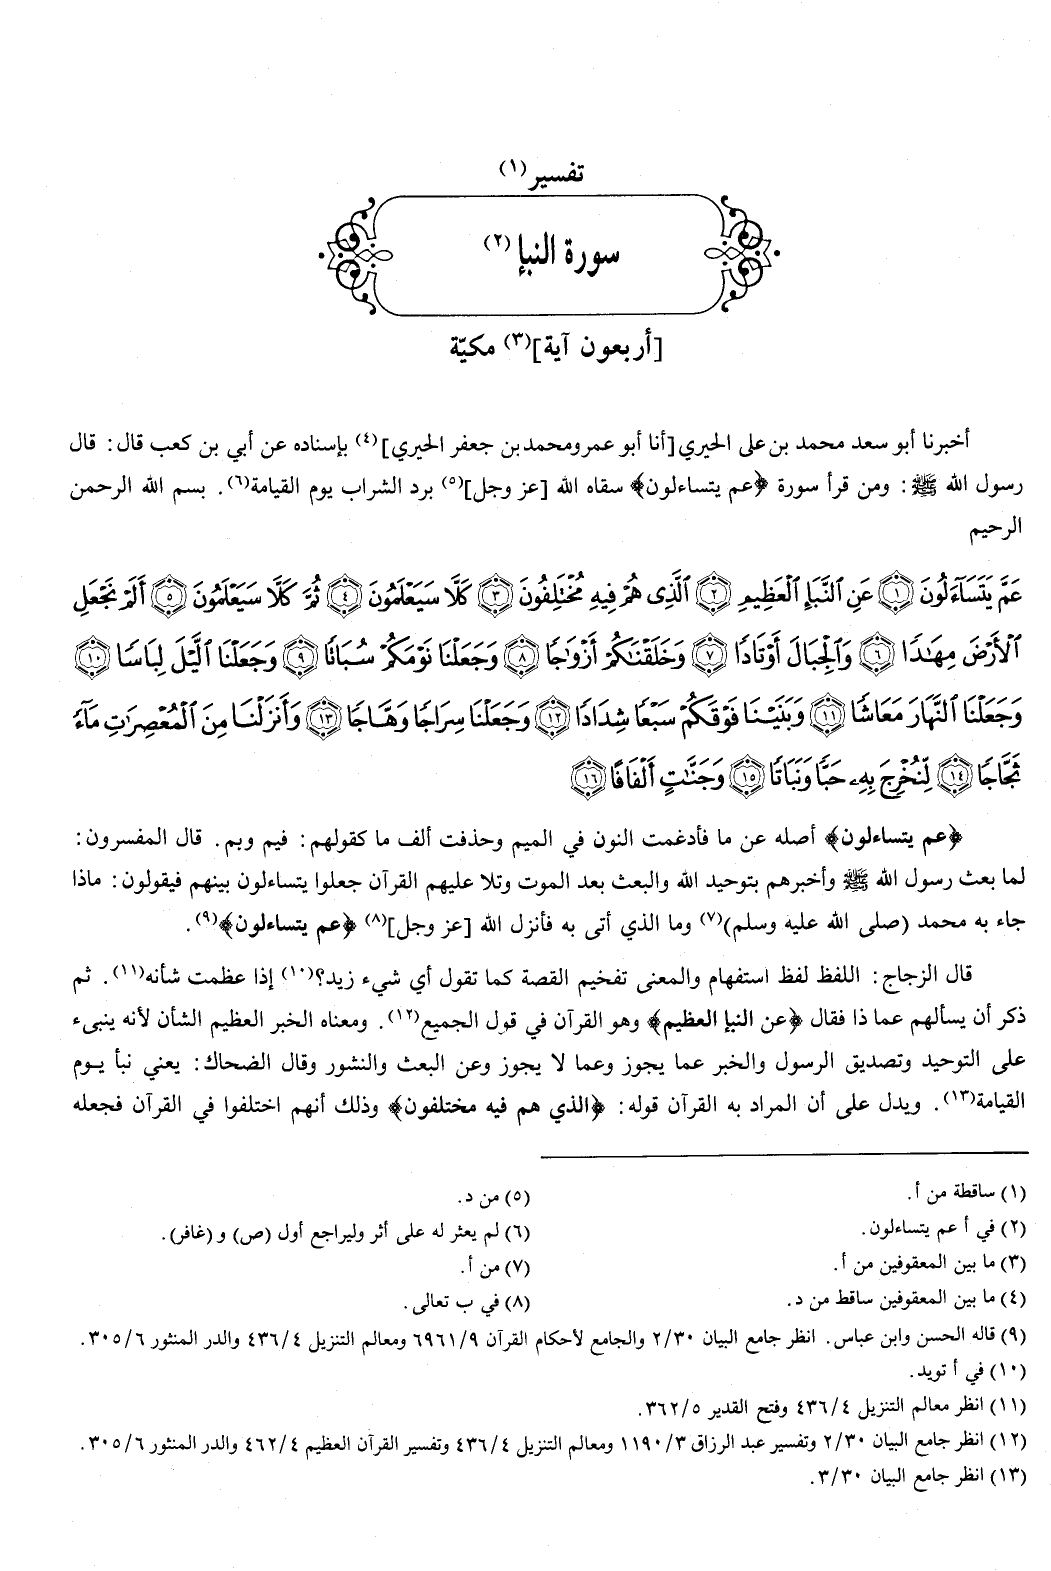 تفسير(١)
سورة النبإ(٢)
[أربعون آية](٣) مكيّة
أخبرنا أبو سعد محمد بن علي الحيري [أنا أبو عمرو محمد بن جعفر الحيري](٤) بإسناده عن أبي بن كعب قال: قال
رسول الله ﷺ: ومن قرأ سورة ﴿عم يتساءلون﴾ سقاه الله [عز وجل](٥) برد الشراب يوم القيامة(٦). بسم الله الرحمن
الرحيم
عَمَّ يَتَسَآءَلُونَ ﴿١﴾ عَنِ ٱلنَّبَإِ ٱلْعَظِيمِ ﴿٢﴾ ٱلَّذِى هُمْ فِيهِ مُخْتَلِفُونَ ﴿٣﴾ كَلَّا سَيَعْلَمُونَ ﴿٤﴾ ثُمَّ كَلَّا سَيَعْلَمُونَ ﴿٥﴾ أَلَمْ نَجْعَلِ
ٱلْأَرْضَ مِهَٰدًا ﴿٦﴾ وَٱلْجِبَالَ أَوْتَادًا ﴿٧﴾ وَخَلَقْنَٰكُمْ أَزْوَٰجًا ﴿٨﴾ وَجَعَلْنَا نَوْمَكُمْ سُبَاتًا ﴿٩﴾ وَجَعَلْنَا ٱلَّيْلَ لِبَاسًا ﴿١٠﴾
وَجَعَلْنَا ٱلنَّهَارَ مَعَاشًا ﴿١١﴾ وَبَنَيْنَا فَوْقَكُمْ سَبْعًا شِدَادًا ﴿١٢﴾ وَجَعَلْنَا سِرَاجًا وَهَّاجًا ﴿١٣﴾ وَأَنزَلْنَا مِنَ ٱلْمُعْصِرَٰتِ مَآءً
ثَجَّاجًا ﴿١٤﴾ لِّنُخْرِجَ بِهِۦ حَبًّا وَنَبَاتًا ﴿١٥﴾ وَجَنَّٰتٍ أَلْفَافًا ﴿١٦﴾
﴿عم يتساءلون﴾ أصله عن ما فأدغمت النون في الميم وحذفت ألف ما كقولهم: فيم وبم. قال المفسرون:
لما بعث رسول الله ﷺ وأخبرهم بتوحيد الله والبعث بعد الموت وتلا عليهم القرآن جعلوا يتساءلون بينهم فيقولون: ماذا
جاء به محمد (صلى الله عليه وسلم)(٧) وما الذي أتى به فأنزل الله [عز وجل](٨) ﴿عم يتساءلون﴾(٩).
قال الزجاج: اللفظ لفظ استفهام والمعنى تفخيم القصة كما تقول أي شيء زيد؟(١٠) إذا عظمت شأنه(١١). ثم
ذكر أن يسألهم عما ذا فقال ﴿عن النبإ العظيم﴾ وهو القرآن في قول الجميع(١٢). ومعناه الخبر العظيم الشأن لأنه ينبىء
على التوحيد وتصديق الرسول والخبر عما يجوز وعما لا يجوز وعن البعث والنشور وقال الضحاك: يعني نبأ يوم
القيامة(١٣). ويدل على أن المراد به القرآن قوله: ﴿الذي هم فيه مختلفون﴾ وذلك أنهم اختلفوا في القرآن فجعله
(١) ساقطة من أ.
(٢) في أ عم يتساءلون.
(٣) ما بين المعقوفين من أ.
(٤) ما بين المعقوفين ساقط من د.
(٥) من د.
(٦) لم يعثر له على أثر وليراجع أول (ص) و (غافر).
(٧) من أ.
(٨) في ب تعالى.
(٩) قاله الحسن وابن عباس. انظر جامع البيان ٢/٣٠ والجامع لأحكام القرآن ٦٩٦١/٩ ومعالم التنزيل ٤٣٦/٤ والدر المنثور ٣٠٥/٦.
(١٠) في أ تويد.
(١١) انظر معالم التنزيل ٤٣٦/٤ وفتح القدير ٣٦٢/٥.
(١٢) انظر جامع البيان ٢/٣٠ وتفسير عبد الرزاق ١١٩٠/٣ ومعالم التنزيل ٤٣٦/٤ وتفسير القرآن العظيم ٤٦٢/٤ والدر المنثور ٣٠٥/٦.
(١٣) انظر جامع البيان ٣/٣٠.